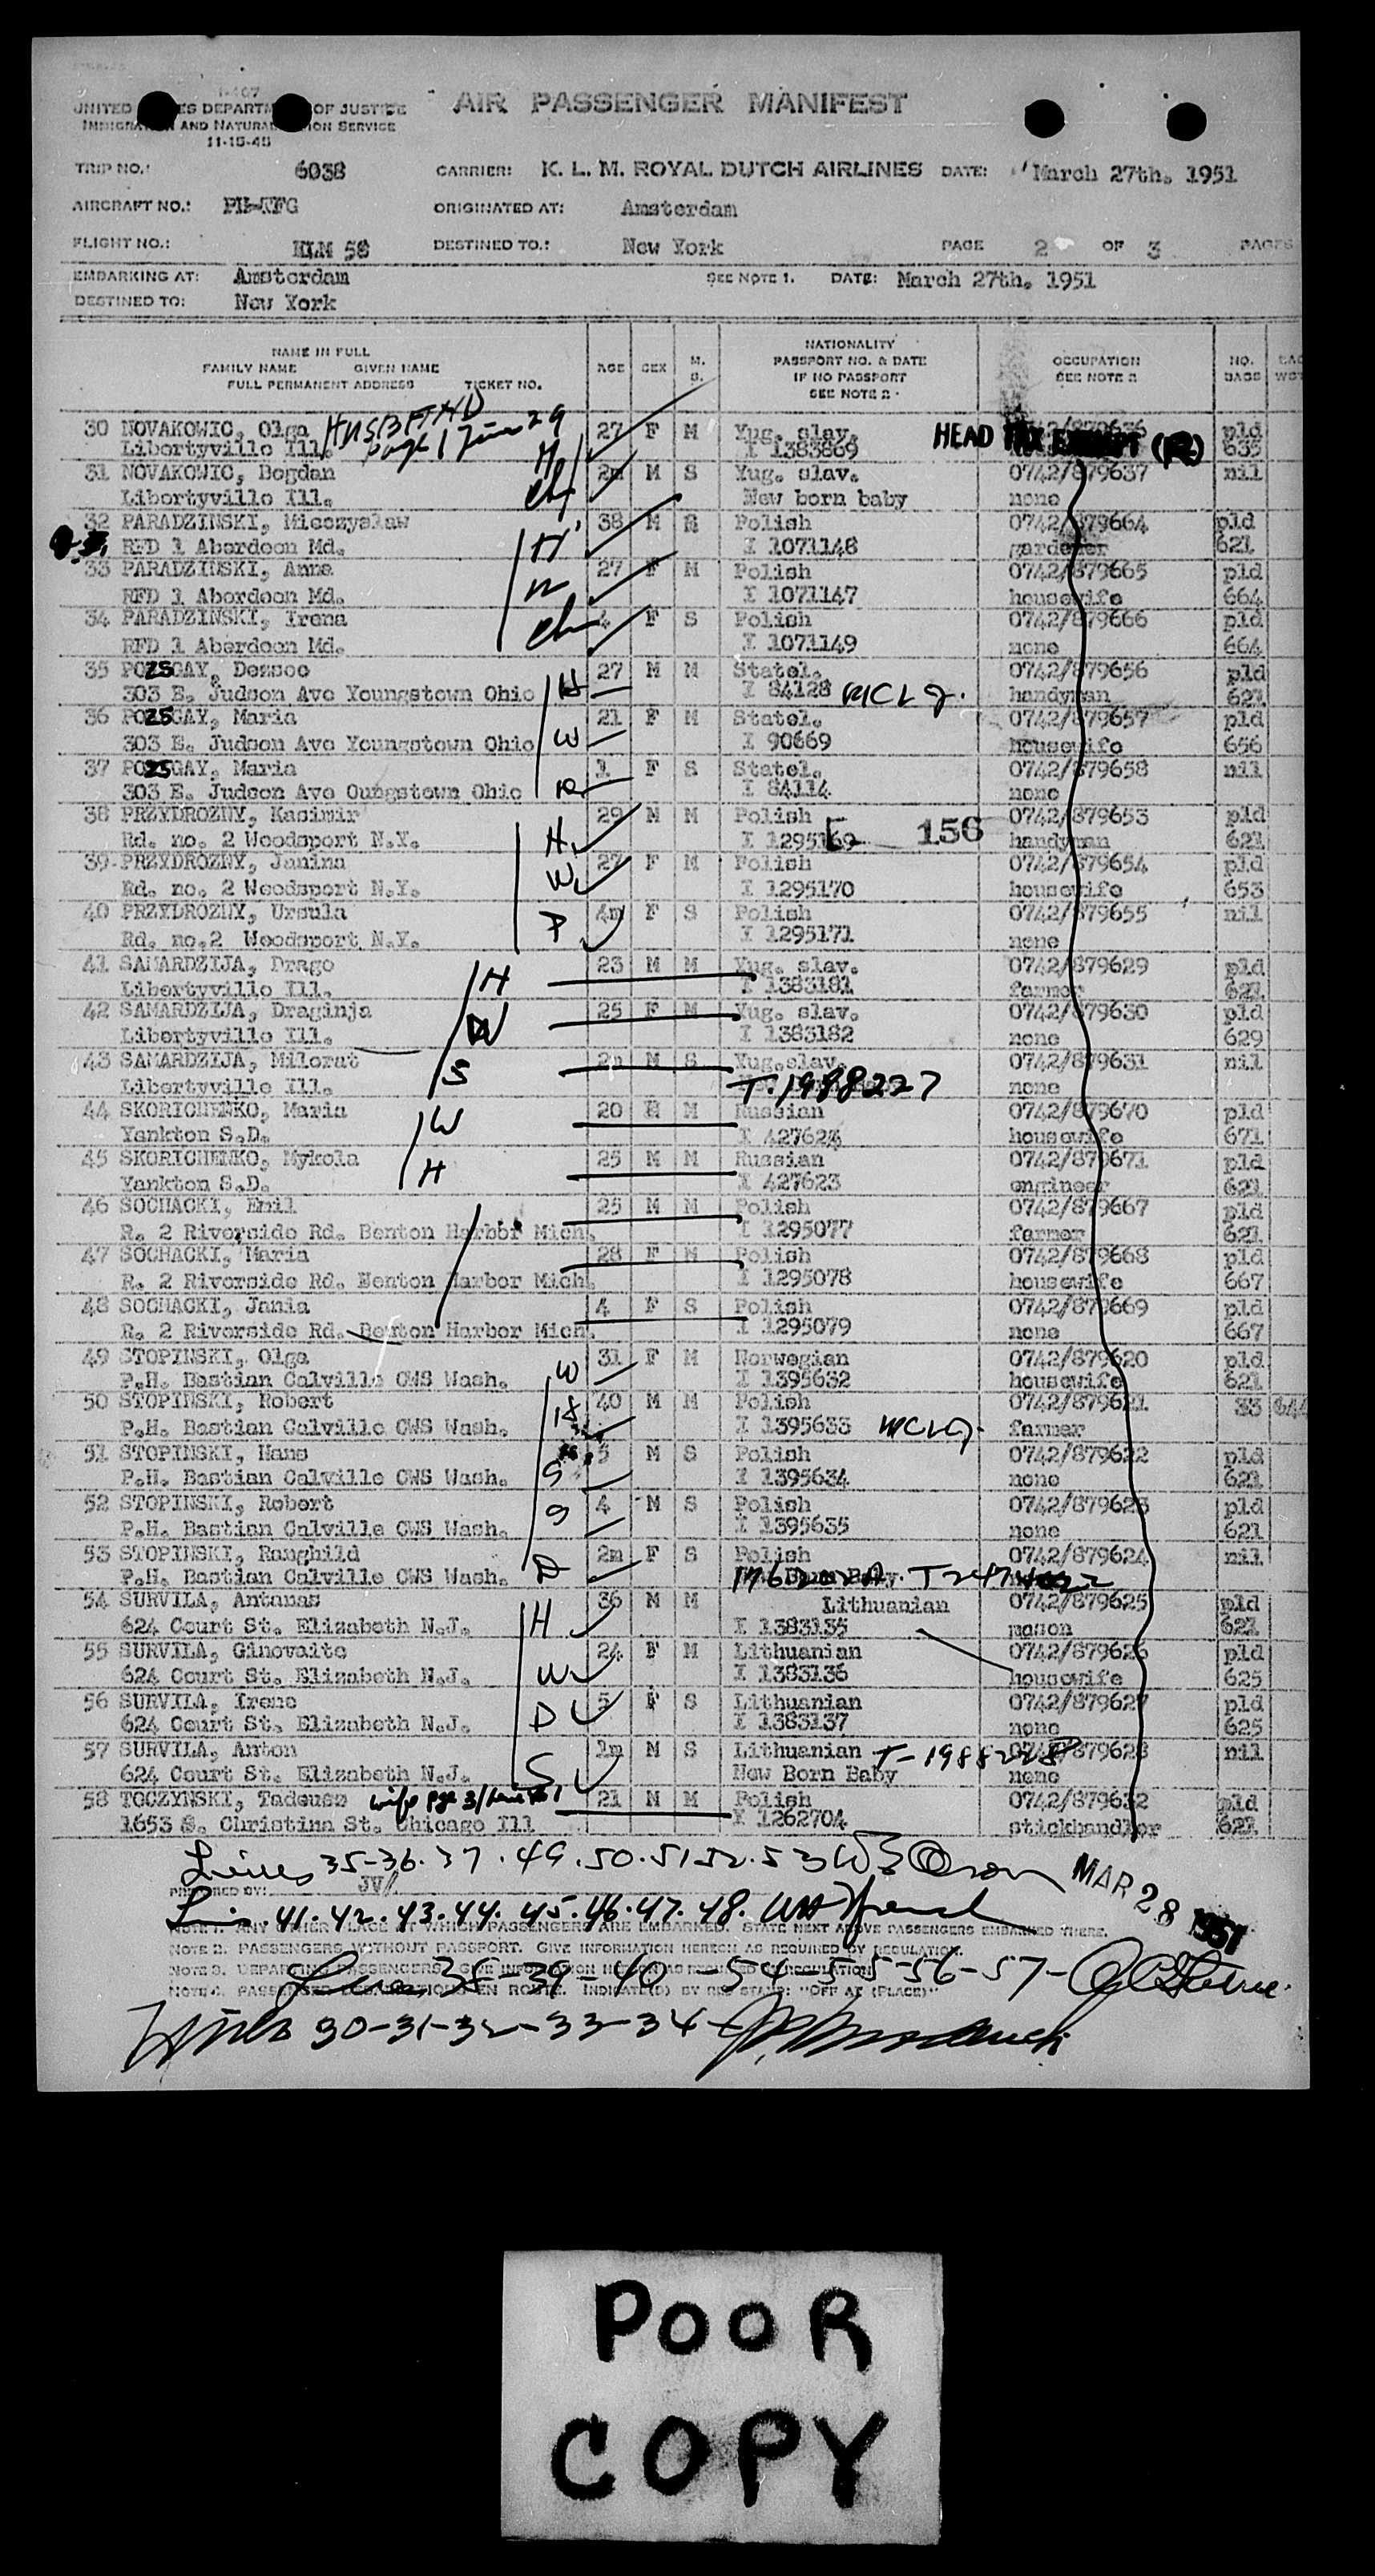 I-407
UNITED STATES DEPARTMENT OF JUSTICE
IMMIGRATION AND NATURALIZATION SERVICE
11-15-45
AIR PASSENGER MANIFEST
TRIP NO.: 6038 CARRIER: K. L. M. ROYAL DUTCH AIRLINES DATE: March 27th. 1951
AIRCRAFT NO.: PH-TFG ORIGINATED AT: Amsterdam
FLIGHT NO.: KLM 58 DESTINED TO.: New York PAGE 2 OF 3 PAGES
EMBARKING AT: Amsterdam SEE NOTE 1. DATE: March 27th. 1951
DESTINED TO: New York
NAME IN FULL
FAMILY NAME GIVEN NAME
FULL PERMANENT ADDRESS TICKET NO.
AGE SEX M. S.
NATIONALITY
PASSPORT NO. & DATE
IF NO PASSPORT
SEE NOTE 2
OCCUPATION
SEE NOTE 2
NO. BAGS
HUSBAND
page 1 line 29
30 NOVAKOWIC, Olga 27 F M Yug. slav. HEAD TAX EXEMPT pld
Libertyville Ill. H I 1383869 635
31 NOVAKOWIC, Bogdan 2m M S Yug. slav. 0742/879637 nil
Libertyville Ill. ch New born baby none
32 PARADZINSKI, Mieczyslaw 38 M M Polish 0742/879664 pld
RFD 1 Aberdeen Md. H I 1071148 gardener 621
33 PARADZINSKI, Anna 27 F M Polish 0742/879665 pld
RFD 1 Aberdeen Md. W I 1071147 housewife 664
34 PARADZINSKI, Irena 4 F S Polish 0742/879666 pld
RFD 1 Aberdeen Md. ch I 1071149 none 664
35 POZSGAY, Dezsoe 27 M M Statel. 0742/879656 pld
303 E. Judson Ave Youngstown Ohio H I 84128 handyman 621
36 POZSGAY, Maria 21 F M Statel. 0742/879657 pld
303 E. Judson Ave Youngstown Ohio W I 90669 housewife 656
37 POZSGAY, Maria 1 F S Statel. 0742/879658 nil
303 E. Judson Ave Oungstown Ohio I 84114 none
38 PRZYDROZNY, Kasimir 29 M M Polish 0742/879653 pld
Rd. no. 2 Weedsport N.Y. H I 1295169 156 handyman 621
39 PRZYDROZNY, Janina 27 F M Polish 0742/879654 pld
Rd. no. 2 Weedsport N.Y. W I 1295170 housewife 653
40 PRZYDROZNY, Ursula 4m F S Polish 0742/879655 nil
Rd. no.2 Weedsport N.Y. D I 1295171 none
41 SAMARDZIJA, Drago 23 M M Yug. slav. 0742/879629 pld
Libertyville Ill. H I 1383181 farmer 621
42 SAMARDZIJA, Draginja 25 F M Yug. slav. 0742/879630 pld
Libertyville Ill. W I 1383182 none 629
43 SAMARDZIJA, Milorat 2m M S Yug.slav. 0742/879631 nil
Libertyville Ill. S T-1988227 none
44 SKORICHENKO, Maria 20 M Russian 0742/879670 pld
Yankton S.D. W I 427624 housewife 671
45 SKORICHENKO, Mykola 25 M M Russian 0742/879671 pld
Yankton S.D. H I 427623 engineer 621
46 SOCHACKI, Emil 25 M M Polish 0742/879667 pld
R. 2 Riverside Rd. Benton Harbor Mich. I 1295077 farmer 621
47 SOCHACKI, Maria 28 F M Polish 0742/879668 pld
R. 2 Riverside Rd. Benton Harbor Mich. I 1295078 housewife 667
48 SOCHACKI, Jania 4 F S Polish 0742/879669 pld
R. 2 Riverside Rd. Benton Harbor Mich. I 1295079 none 667
49 STOPINSKI, Olga 31 F M Norwegian 0742/879620 pld
P.H. Bastian Calville CWS Wash. W I 1395632 housewife 621
50 STOPINSKI, Robert 40 M M Polish 0742/879621 33 644
P.H. Bastian Calville CWS Wash. H I 1395633 farmer
51 STOPINSKI, Hans 5 M S Polish 0742/879622 pld
P.H. Bastian Calville CWS Wash. S I 1395634 none 621
52 STOPINSKI, Robert 4 M S Polish 0742/879623 pld
P.H. Bastian Calville CWS Wash. S I 1395635 none 621
53 STOPINSKI, Ranghild 2m F S Polish 0742/879624 nil
P.H. Bastian Calville CWS Wash. D
54 SURVILA, Antanas 36 M M Lithuanian 0742/879625 pld
624 Court St. Elizabeth N.J. H I 1383135 mason 621
55 SURVILA, Ginovaite 24 F M Lithuanian 0742/879626 pld
624 Court St. Elizabeth N.J. W I 1383136 housewife 625
56 SURVILA, Irene 5 F S Lithuanian 0742/879627 pld
624 Court St. Elizabeth N.J. D I 1383137 none 625
57 SURVILA, Anton 1m M S Lithuanian T-1988228 0742/879628 nil
624 Court St. Elizabeth N.J. S New Born Baby none
58 TOCZYNSKI, Tadeusz wife pge 3/line 21 M M Polish 0742/879632 pld
1653 S. Christina St. Chicago Ill I 1262704 stickhandler 621
Lines 35-36-37.49.50.51.52.53
MAR 28 1951
PREPARED BY: JV/
41.42.43.44.45.46.47.48.
NOTE 1. ANY OTHER PLACE AT WHICH PASSENGERS ARE EMBARKED. STATE NEXT ABOVE PASSENGERS EMBARKED THERE.
NOTE 2. PASSENGERS WITHOUT PASSPORT. GIVE INFORMATION HEREON AS REQUIRED BY REGULATION.
NOTE 3. DEPARTING PASSENGERS. GIVE INFORMATION HEREON AS REQUIRED BY REGULATION
Lines 38-39-40-54-55-56-57-
Lines 30-31-32-33-34-
POOR
COPY